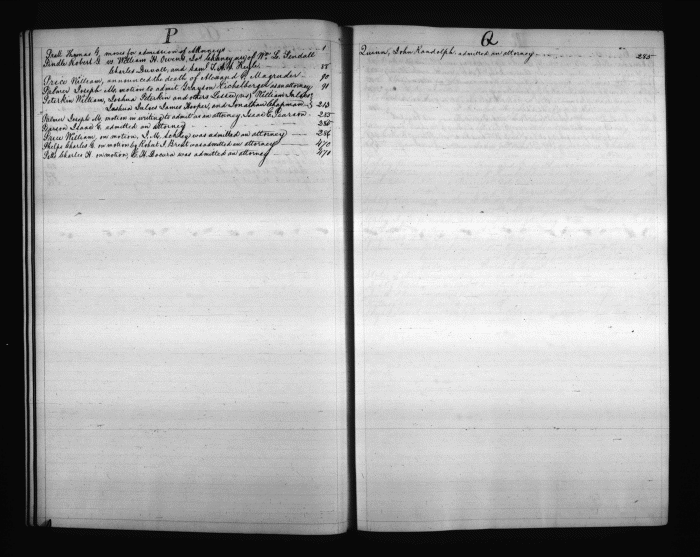 P
Pratt Thomas G. moves for admission of Attorneys 1
Pindle Robert G vs William H. Owens, Sol Chancery of Wm L. Tindall
Charles Duvall, and 88
Price William, announced the death of Alexand C Magruder 90
Palmer Joseph M. motion to admit Grayson Eichelberger as an attorney 91
Peterkin William, Joshua Peterkin and others Lessee, vs William Inloes
Joshua Inloes James Hooper, and Jonathan Chapman 213
Palmer Joseph M. motion in writing to admit as an attorney Isaac E. Pearson 285
Pearson Isaac E. admitted an Attorney 285
Price William, on motion, was admitted an attorney 286
Phelps Charles E. on motion by Robert J. Brent was admitted an attorney 470
Pitts Charles H. on motion, was admitted an attorney 470
Q
Quinn, John Randolph admitted an attorney 285